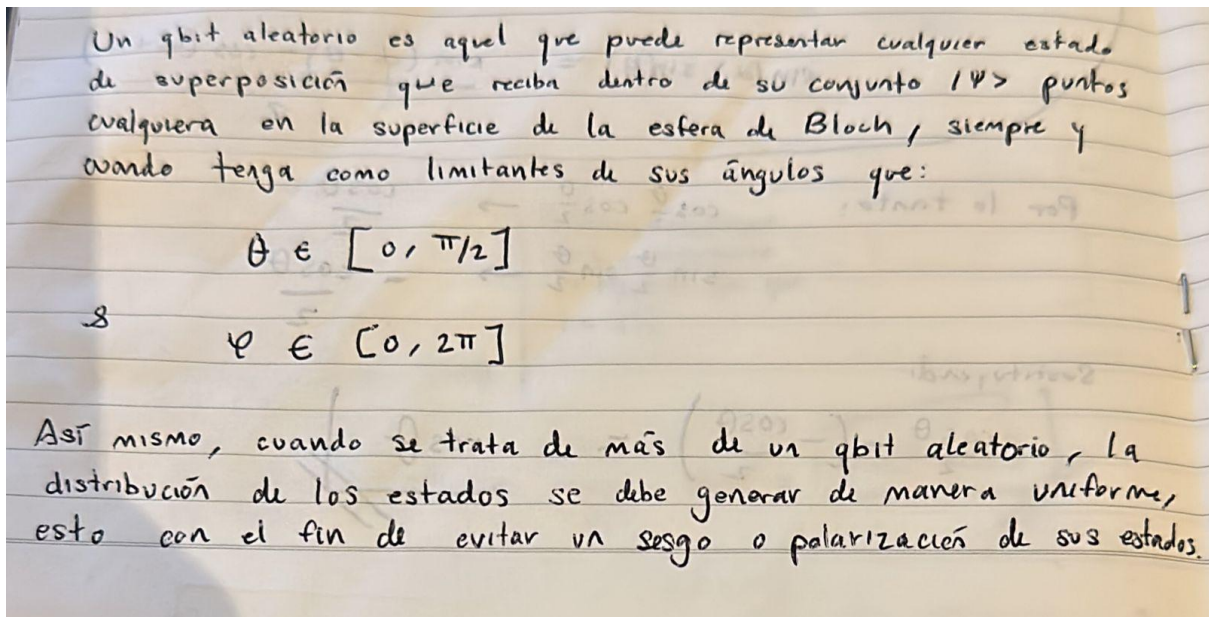 Un qbit aleatorio es aquel que puede representar cualquier estado
de superposición que reciba dentro de su conjunto |Ψ> puntos
cualquiera en la superficie de la esfera de Bloch, siempre y
cuando tenga como limitantes de sus ángulos que:
θ ∈ [0, π/2]
φ ∈ [0, 2π]
Así mismo, cuando se trata de más de un qbit aleatorio, la
distribución de los estados se debe generar de manera uniforme,
esto con el fin de evitar un sesgo o polarización de sus estados.